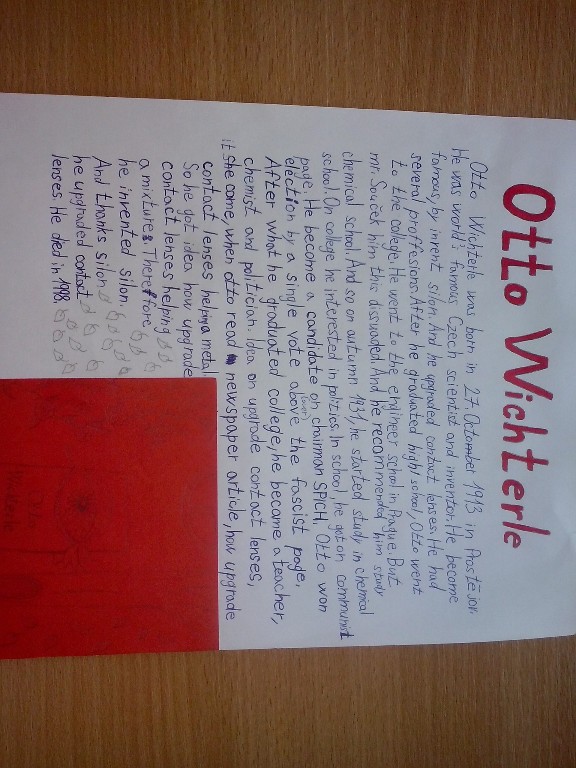 Otto Wichterle
Otto Wichterle was born in 27. Octomber 1913 in Prostějov.
He was world's famous Czech scientist and inventor. He become
famous, by invent silon. And he upgraded contact lenses. He had
several proffesions. After he graduated high school, Otto went
to the college. He went to the engineer school in Prague. But
mr. Souček him this dissuaded. And he recommended him study
chemical school. And so on autumn 1931, he started study in chemical
school. On college he interested in politics. In school, he got on communist
page. He become a candidate on chairman SPICH. Otto won
election by a single vote above (over) the fascist page.
After what he graduated college, he became a teacher,
chemist and politician. Idea on upgrade contact lenses,
it she come, when otto read newspaper article, how upgrade
contact lenses helping metal
So he got idea how upgrade
contact lenses helping
a mixtures. Therefore
he invented silon.
And thanks silon
he upgraded contact
lenses. He died in 1998.